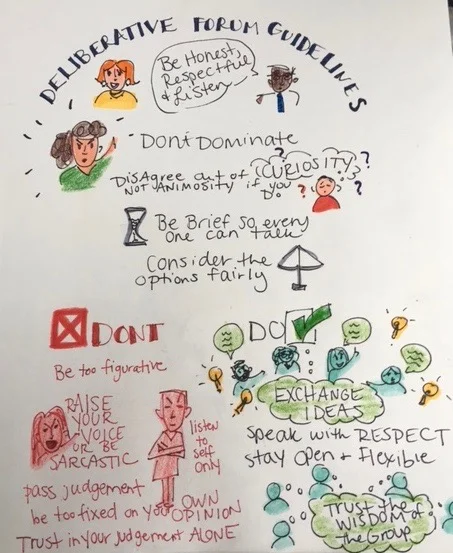 DELIBERATIVE FORUM GUIDELINES
Be Honest,
Respectful
& Listen
Dont Dominate
DisAgree out of CURIOSITY
NOT ANIMOSITY if you
Do
? ? ? ?
Be Brief so every
one can talk
Consider the
options fairly
DONT
Be too figurative
RAISE
YOUR
VOICE
OR BE
SARCASTIC
listen
to
self
only
pass judgement
be too fixed on your OWN
OPINION
Trust in your judgement ALONE
DO
EXCHANGE
IDEAS
Speak with RESPECT
stay open + Flexible
Trust the
WISDOM of
the Group